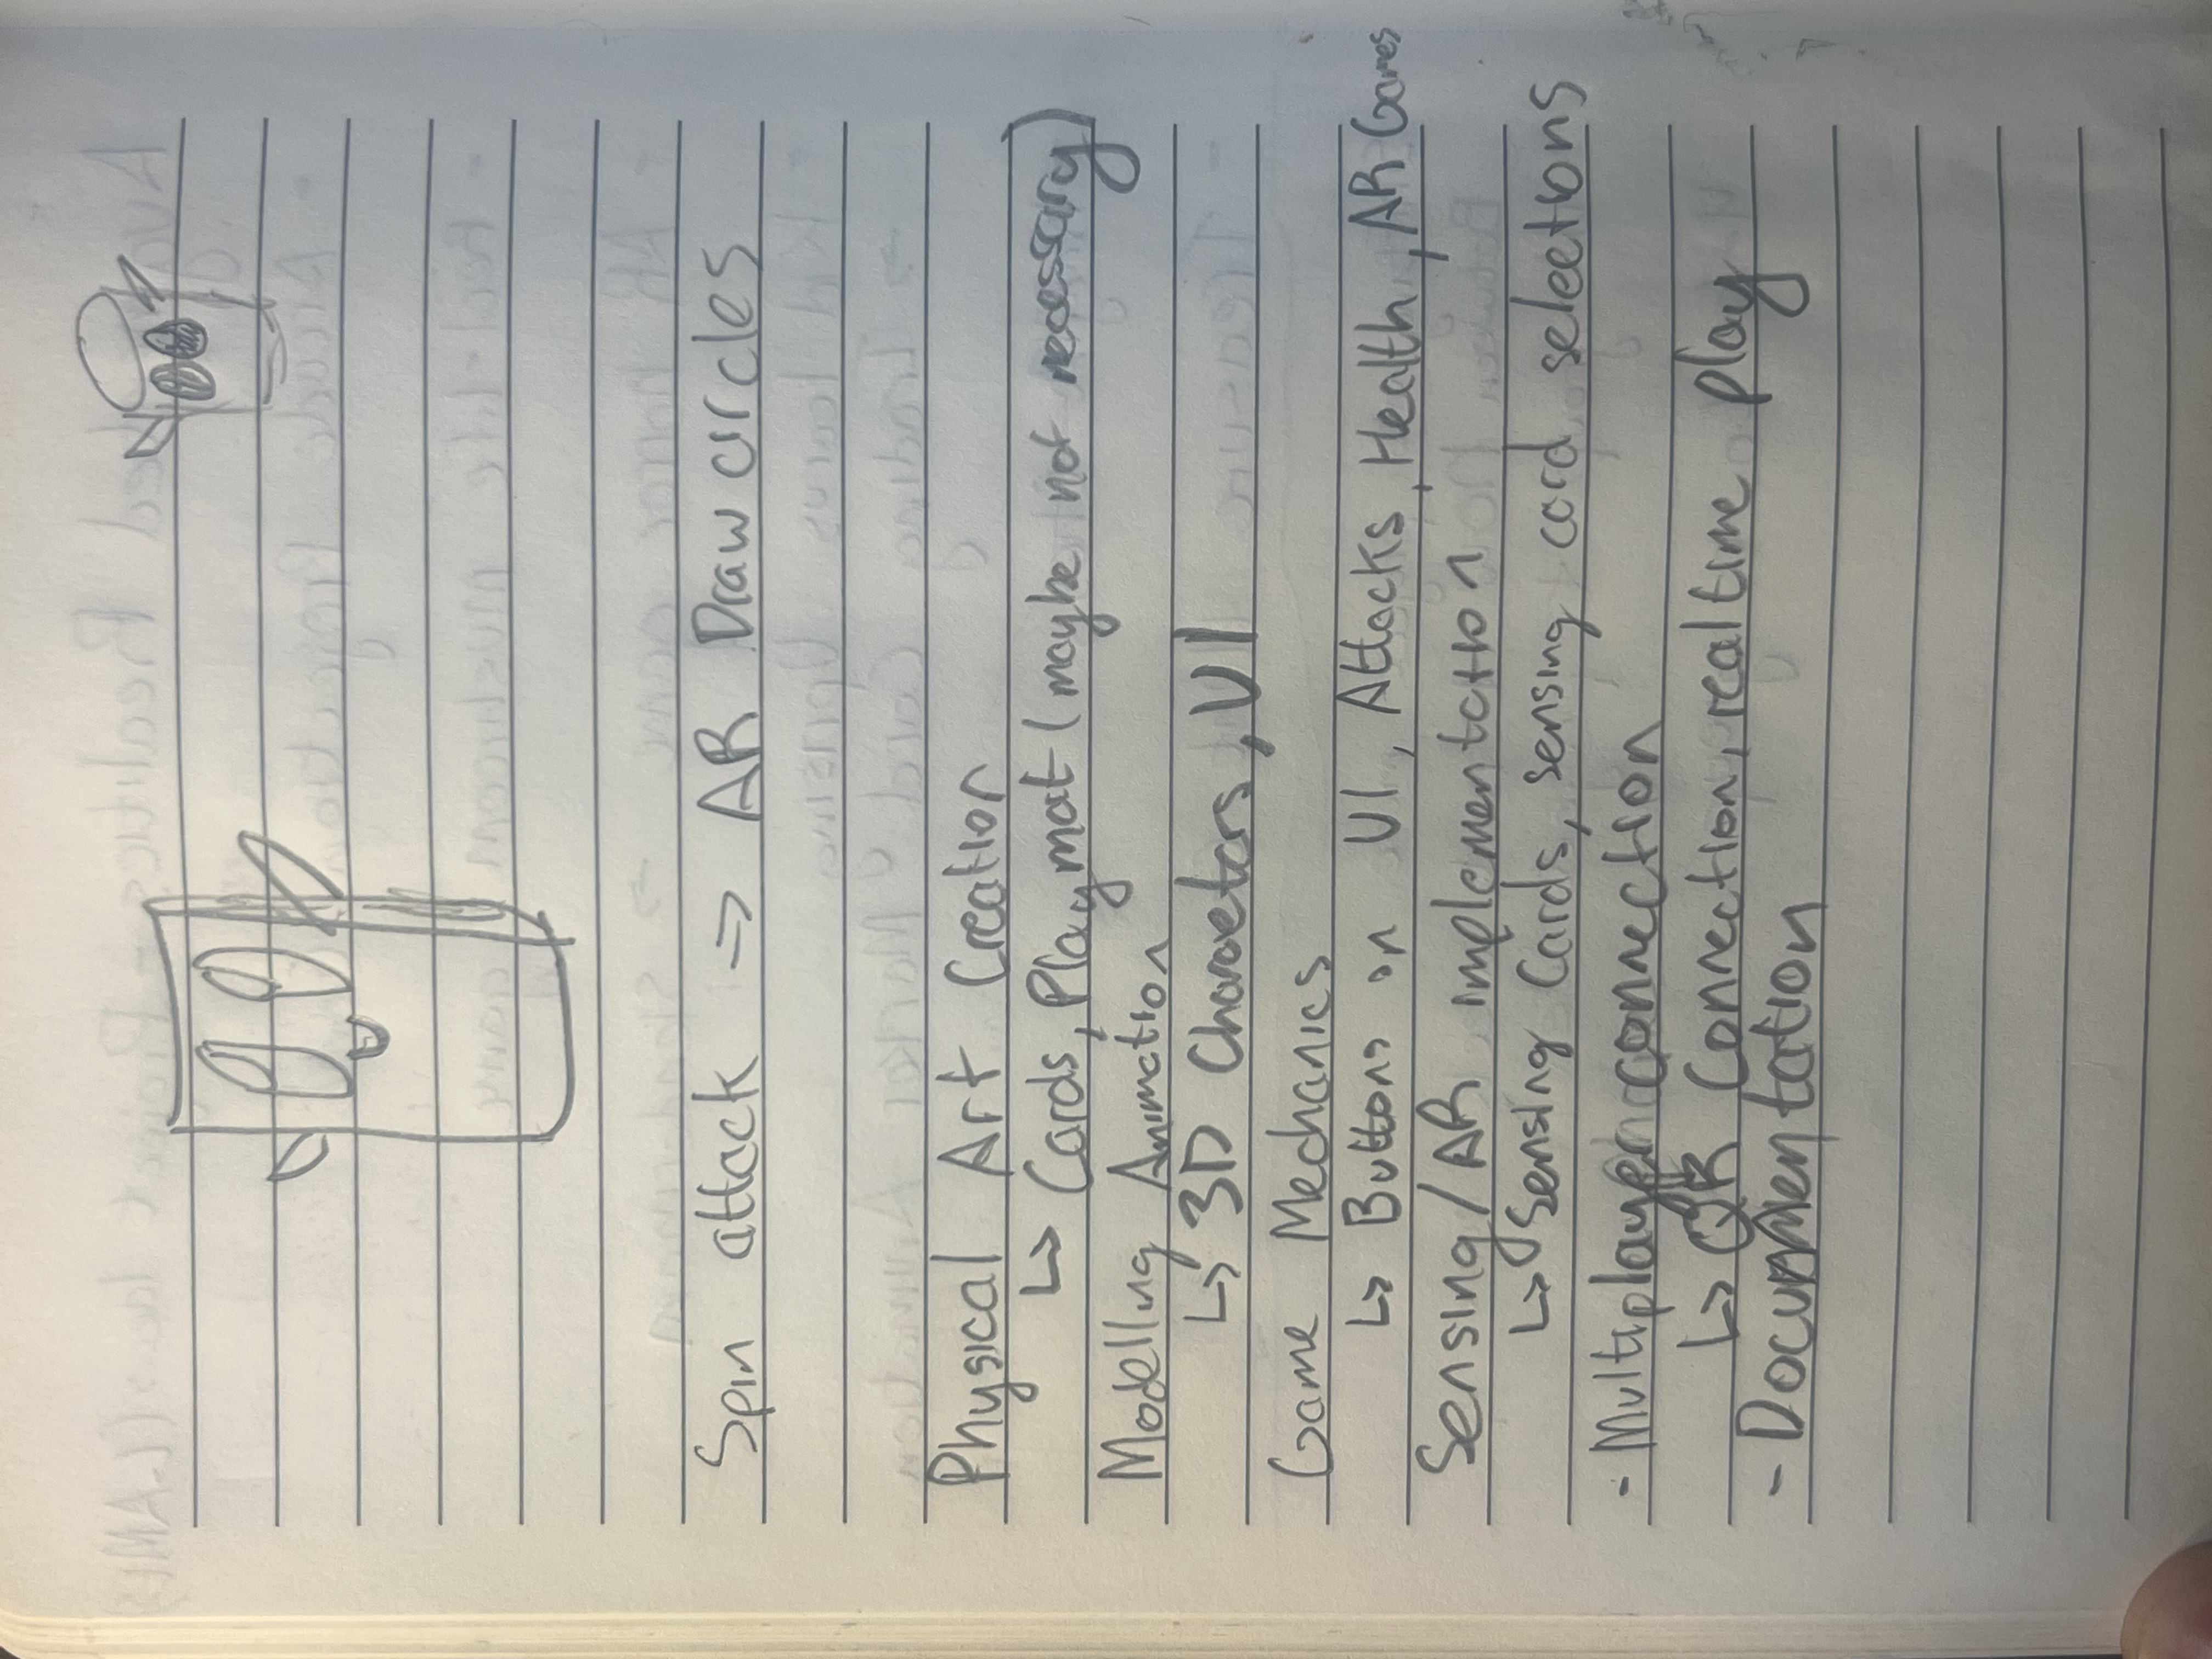 Spin attack => AR Draw circles
Physical Art Creation
↳ Cards, Playmat (maybe not necessary)
Modelling Animation
↳ 3D Characters, UI
Game Mechanics
↳ Buttons on UI, Attacks, Health, AR Games
Sensing/AR implementation
↳ Sensing Cards, sensing card selections
- Multiplayer connection
↳ QR Connection, realtime play
- Documentation